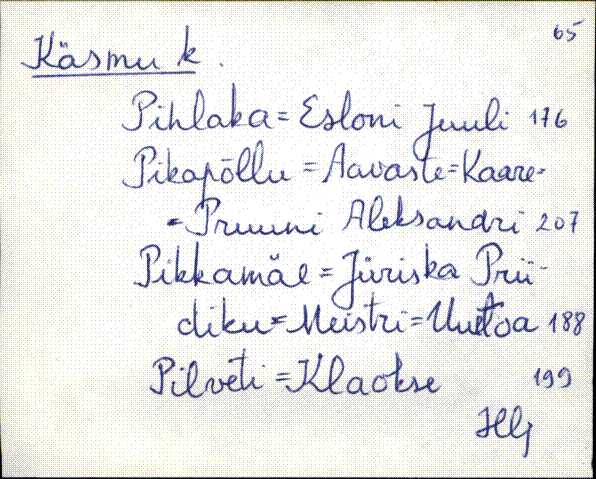 65
Käsmu k.
Pihlaka = Esloni Juuli 176
Pikapõllu = Aavaste = Kaare-
= Pruuni Aleksandri 207
Pikkamäe = Jüriska Prii-
diku = Meistri = Uuetoa 188
Pilveti = Klaokse 199